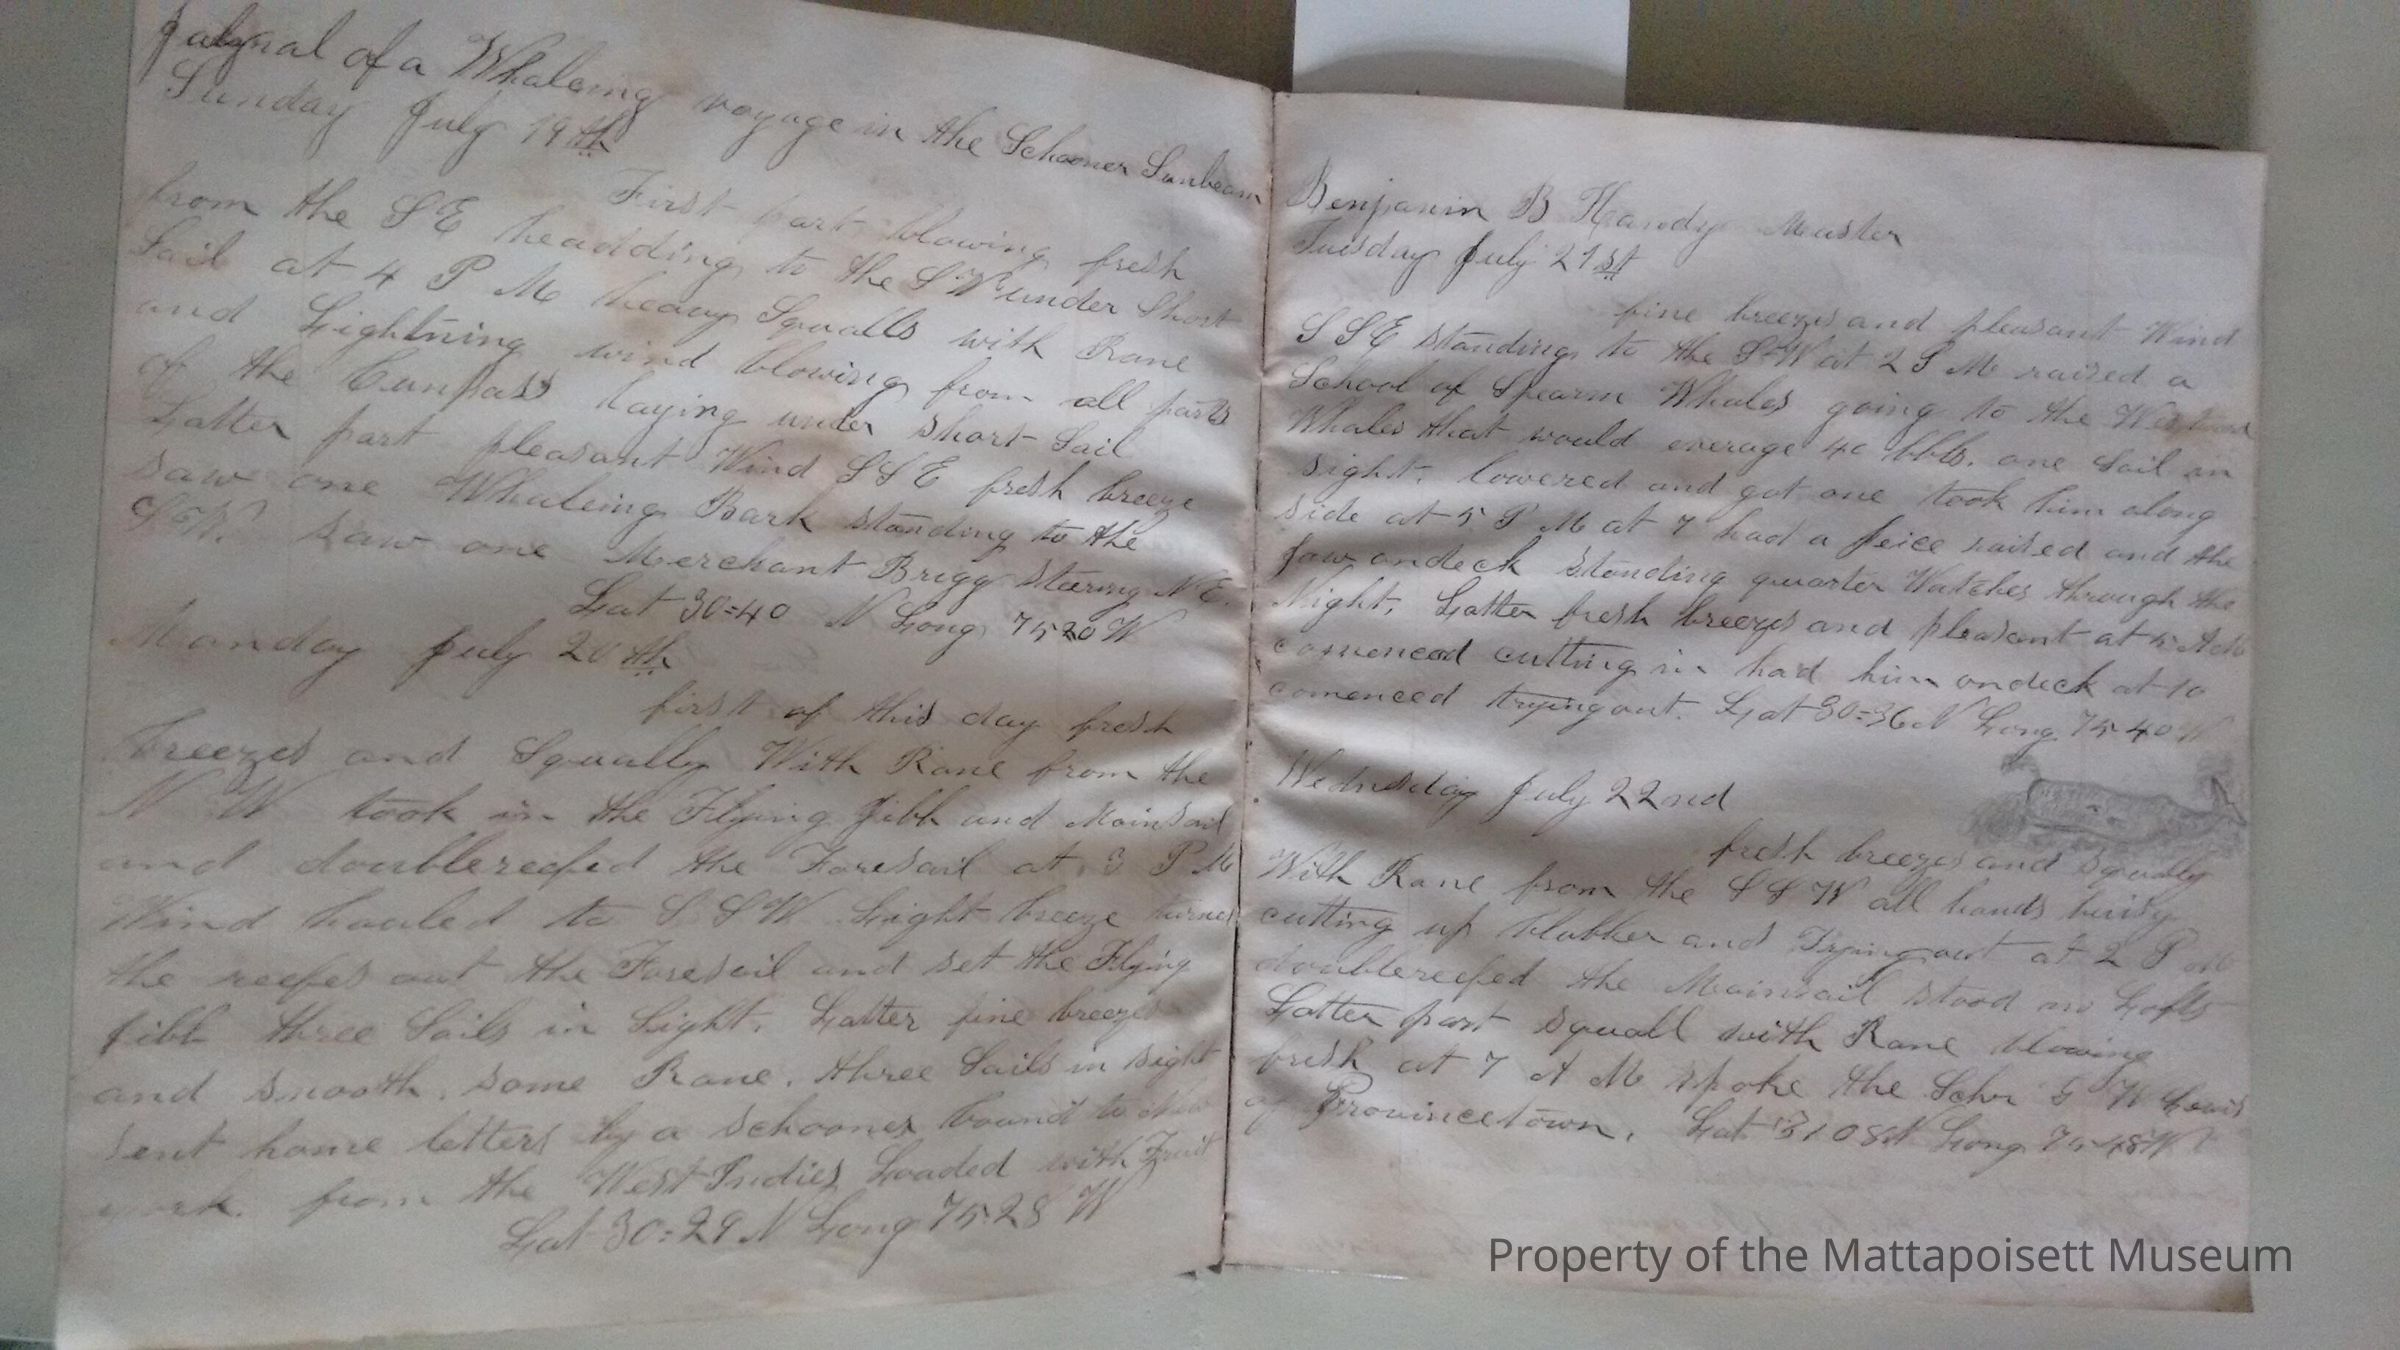 Julynal of a Whaleing voyage in the Schooner Sunbeam
Sunday July 19th
First part blowing fresh
from the SE headding to the SW under Short
Sail at 4 P M heavy Squalls with Rane
and Lightning wind blowing from all parts
of the Cumpass laying under short Sail
Latter part pleasant Wind SSE fresh breeze
saw one Whaleing Bark standing to the
SW. saw one Merchant Brigg steering N E.
Lat 30=40 N Long 75 20 W
Monday July 20th
first of this day fresh
breezes and Squally With Rane from the
N W took in the Flying Jibb and Mainsail
and doublereefed the Foresail at 3 P M
Wind hauled to S.SW Light breeze turned
the reefes out the Foresail and set the Flying
Jibb three Sails in Sight. Latter fine breezes
and smooth. some Rane. three Sails in sight
sent home letters by a schooner bound to New
york. from the West Indies Loaded with Fruit
Lat 30=29 N Long 75.28 W
Benjamin B Handy Master
Tuesday July 21st
fine breezes and pleasant Wind
SSE standing to the S=W at 2 P M raised a
School of Spearm Whales going to the Westward
Whales that would everage 40 bbls. one Sail in
sight. lowered and got one took him along
side at 5 P M at 7 had a peice raised and the
Jaw ondeck standing quarter Watches through the
Night. Latter fresh breezes and pleasant at 5 A M
comenced cutting in had him ondeck at 10
comenced trying out. Lat 30=36 N Long 75-40 W
Wednsday July 22nd
fresh breezes and squally
With Rane from the SSW all hands buisy
cutting up blubber and Trying out at 2 P M
doublereefed the Mainsail stood no Lofts
Latter part squall with Rane blowing
fresh at 7 A M spoke the Schr S W Lewis
of Provincetown. Lat 31 08 N Long 75-48 W
Property of the Mattapoisett Museum